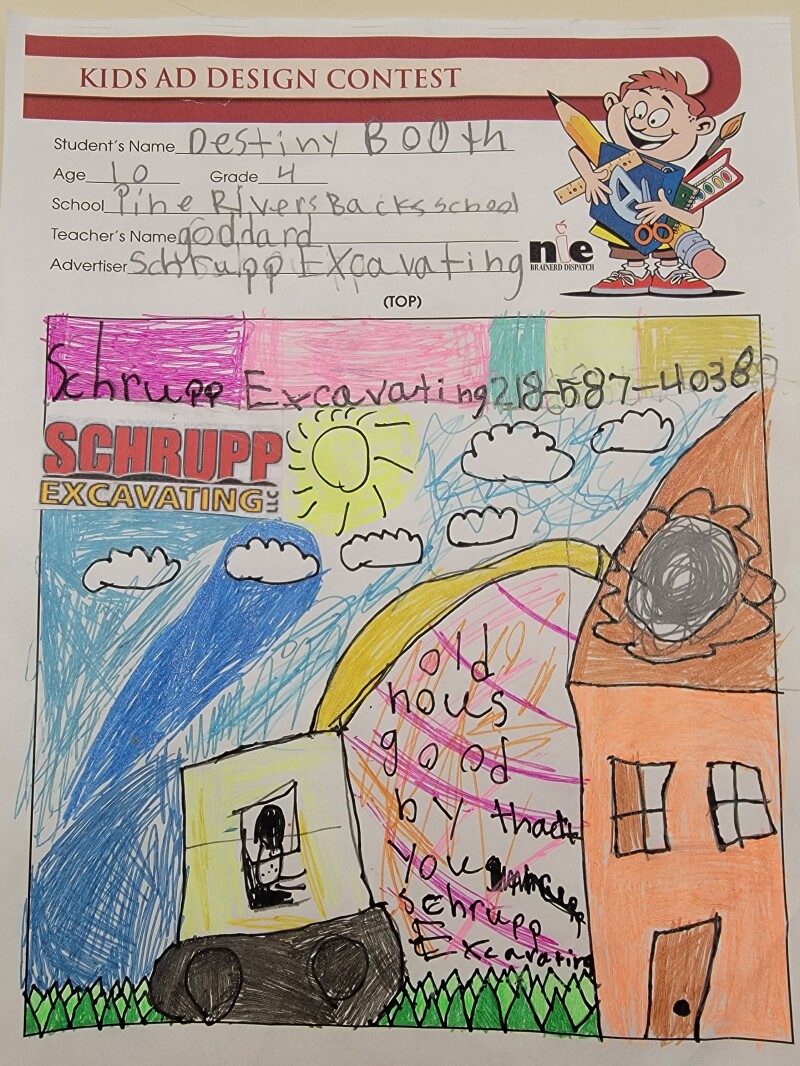 KIDS AD DESIGN CONTEST
Student's Name Destiny BOOth
Age 10 Grade 4
School Pine Rivers Backs school
Teacher's Name goddard
Advertiser Schrupp EXcavating
nie
BRAINERD DISPATCH
(TOP)
Schrupp Excavating 218-587-4038
SCHRUPP
EXCAVATING LLC
old
hous
good
by
you
schrupp
Excavating